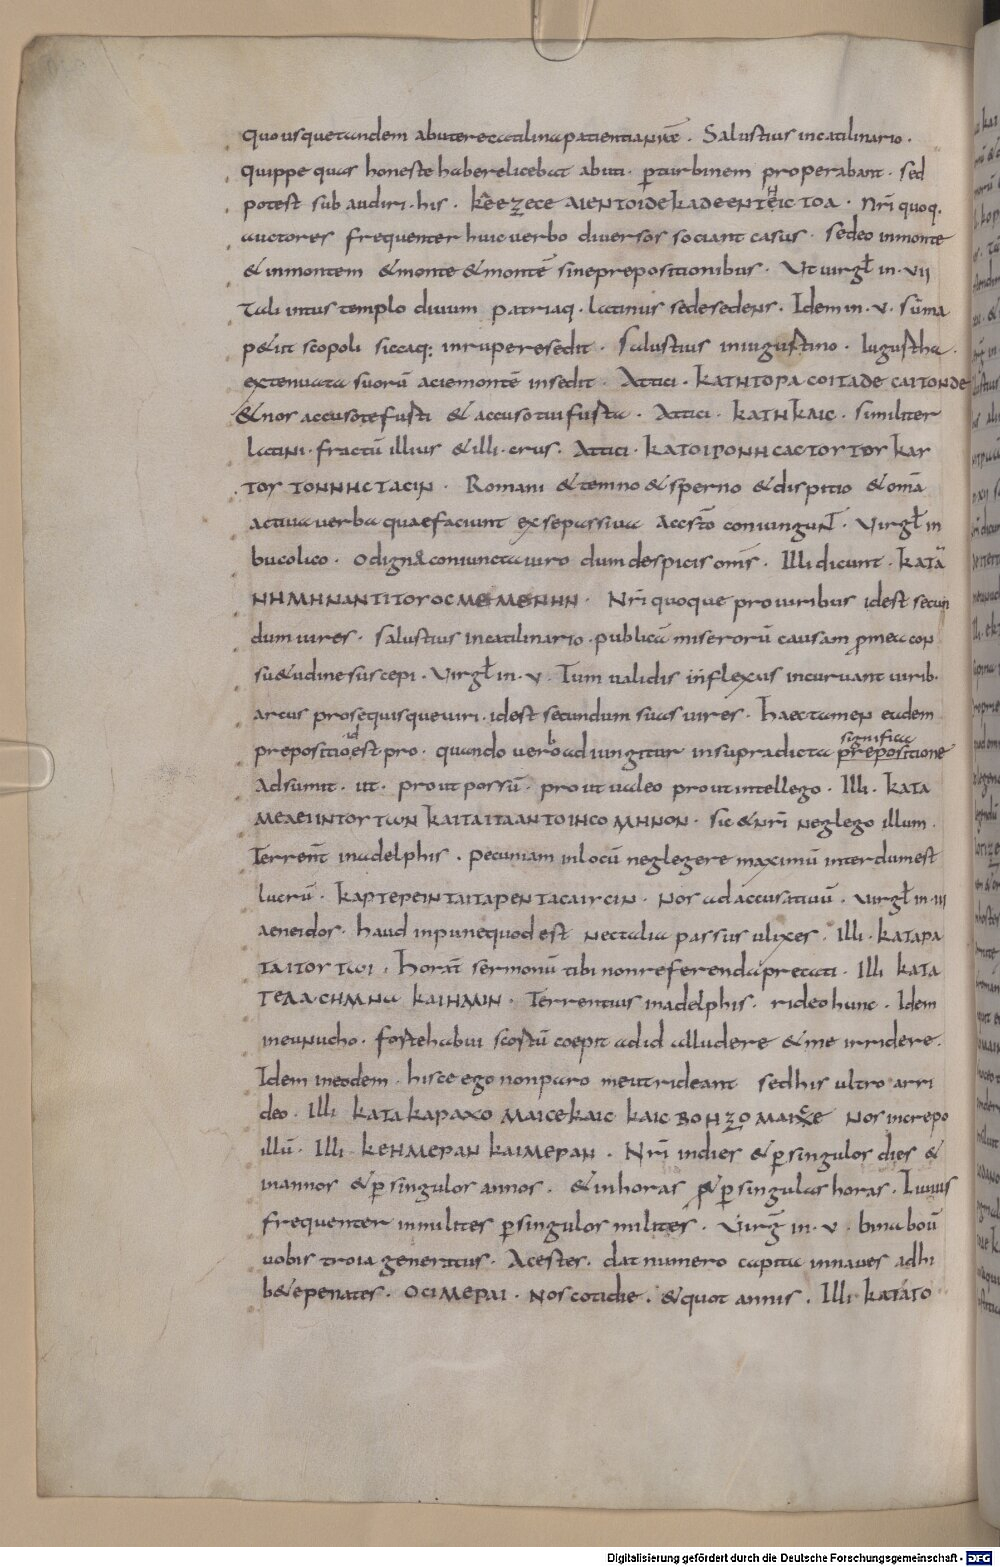 quousquetandem abuterecatilinapatientianr̄ē . Salustius incatilinario .
quippe quas honestehaberelicebat abuti . ꝑturbinem properabant . sed
potest subaudiri . his . kēezece aιεντοιdεkαdεεντεις τοα . Nr̄i quoq.
auctores frequenter huic verbo diversos sociant casus . sedeo inmonte
& inmontem & monte & montē sineprepositionibus . Ut virgł in . vii
Tali intus templo divum patriaq . latinus sedesedens . Idem in . v . sūma
p&iit scopoli siccaq; inrupereresedit . Salustius iniugustino . Iugustha .
extenuata suorū aciemontē insedit . Attici . ΚΑΤΗΤΟΡΑ COITADE CAITONDE
&nos accusotefusti & accusotuifusta . Attici . ΚΑΤΗΚΑΙC . similiter
latini . fractū illius & illi . crus . Attici . ΚΑΤΟΙΡΟΝΗ CACTOΓΤΟΓ ΚΑΓ
ΤΟΓ ΤΟΝΝΗCΤΑCΙΝ . Romani & temno & sperno & dispitio & om̄a
activa verba quaefaciunt exsepassiva accst̄o coniungunT̄ . Virgł in
bucolico . O dign&coniunctaviro dumdespicis om̄s . Illi dicunt . ΚΑΤΑ
ΝΗΜΗΝΑΝΤΙΤΟΓΟC ΜΕΜΕΝΗΝ . Nr̄i quoque proviribus idest secun
dum vires . Salustius incatilinario . publicā miserorū causam ꝓmea con
su&udine suscepi . Virgł in . v . Tum validis inflexus incurvant virib.
arcus prosequisque viri . idest secundum suas vires . haectamen eadem
prepositio id est pro . quando vero adiungitur insupradicta significa prepositione
Adsumit . ut . prout possū . prout valeo prout intellego . Illi . ΚΑΤΑ
ΜΕΛΕΙΙΝΤΟΓ ΤωΝ ΚΑΙΤΑΙΤΑΑΝΤΟΙΗCΟ ΜΗΝΟΝ . sic & nr̄i neglego illum .
Terrent̄ inadelphis . pecuniam inlocū neglegere maximū interdumest
lucrū . ΚΑΡΤΕΡΕΙΝ ΤΑΙΤΑΡΕΝ ΤΑCΑΙΓCΙΝ . Nos adaccusativū . Virgł in . iii
aeneidos . haud inpunequodest nectalia passus ulixes . Illi . ΚΑΤΑΡΑ
ΤΑΙΤΟΓ ΤωΙ . Horat̄ sermonū tibi nonreferenda precati . Illi ΚΑΤΑ
ΤΕΛΑCΗΜΝΑ ΚΑΙΗΜΙΝ . Terrentius inadelphis . rideo hunc . Idem
ineunucho . fostehabui scostū coepit adid alludere & me irridere .
Idem ineodem . hisce ego nonparo meutrideant sedhis ultro arri
deo . Illi ΚΑΤΑ ΚΑΡΑΧΟ ΜΑΙCΕΚΑΙC ΚΑΙC ΒΟΗΖΟ ΜΑΙΧΕ Nos increpo
illū . Illi ΚΕΗΜΕΡΑΝ ΚΑΙΜΕΡΑΝ . Nr̄i indies & ꝑsingulos dies &
inannos & ꝑsingulos annos . & inhoras & ꝑsingulas horas . Livius
frequenter inmilites ꝑsingulos milites . Virḡ in . v . bina boū
vobis troia generatus . Acestes . dat numero capita innaves adhi
b&epenates . ΟCΙΜΕΡΑΙ . Nos cotidie . & quot annis . Illi ΚΑΤΑΤΟ
Digitalisierung gefördert durch die Deutsche Forschungsgemeinschaft - DFG